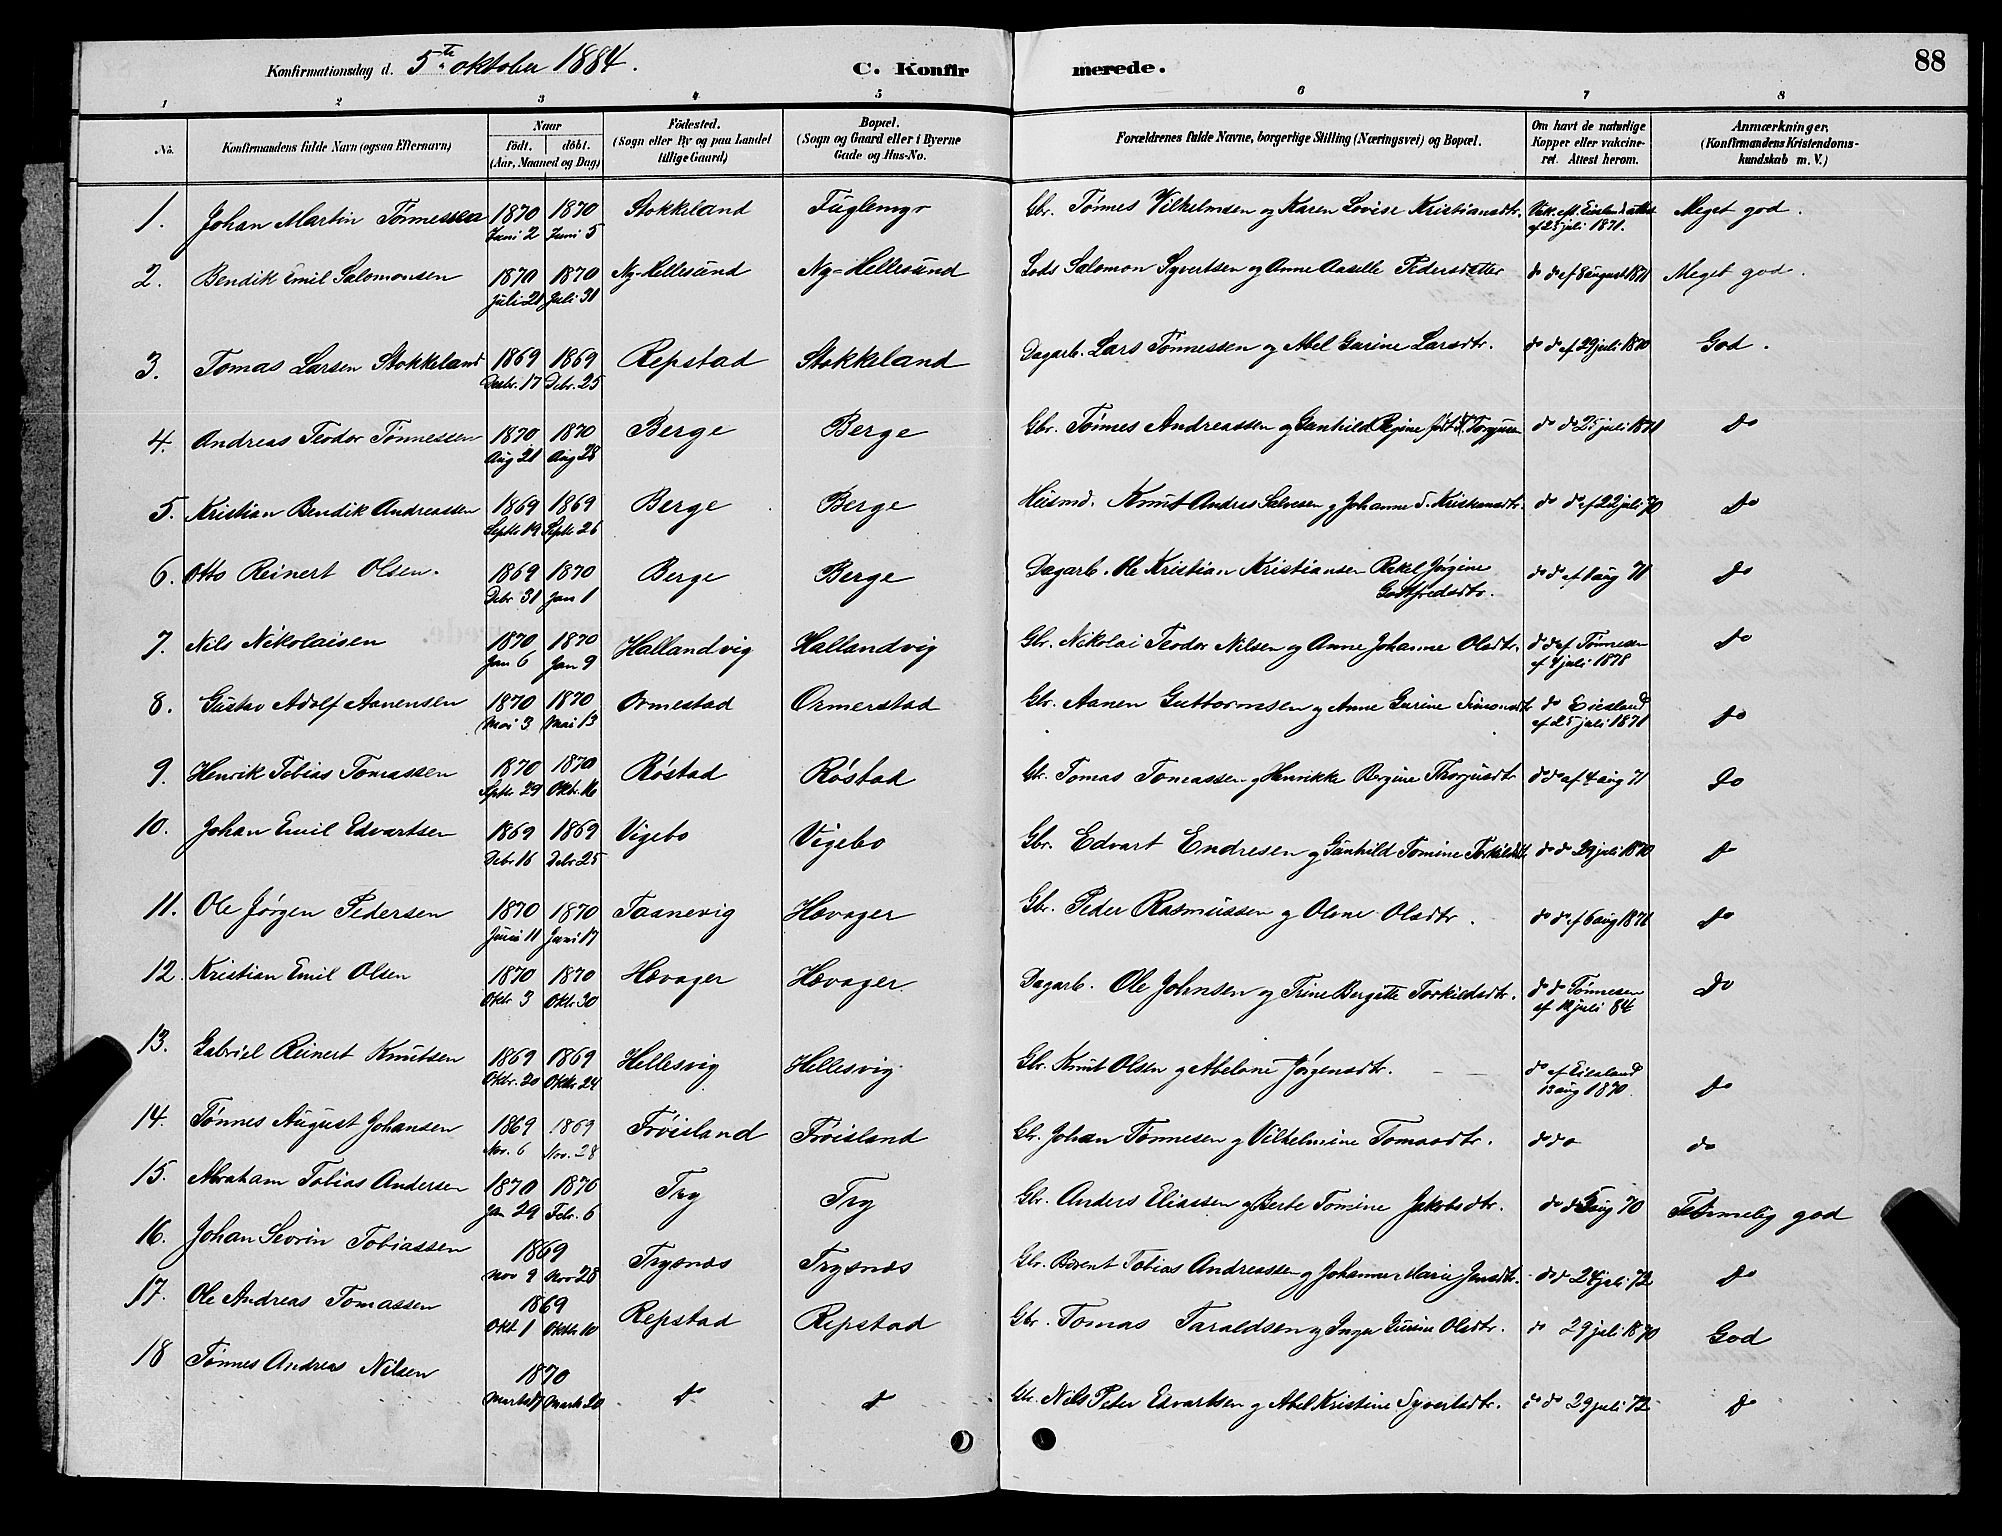 Konfirmationsdag d. 5te oktober 1884. C. Konfirmerede. 88
1 2 3 4 5 6 7 8
No. Konfirmandens fulde Navn (ogsaa Efternavn) Naar födt. döbt. (Aar, Maaned og Dag) Födested. (Sogn eller By og paa Landet tillige Gaard) Bopæl. (Sogn og Gaard eller i Byerne Gade og Hus-No. Forældrenes fulde Navne, borgerlige Stilling (Næringsvei) og Bopæl. Om havt de naturlige Kopper eller vakcineret. Attest herom. Anmærkninger. (Konfirmandens Kristendomskundskab m. V.)
1. Johan Martin Tønnessen 1870 Juni 2 1870 Juni 5 Stokkeland Fuglemyr Gbr. Tønnes Vilhelmsen og Karen Lovise Kristiansdtr. af 25 juli 1871. Meget god.
2. Bendik Emil Salomonsen 1870 Juli 21 1870 Juli 31 Ny-Hellesund Ny-Hellesund Lods Salomon Syvertsen og Anne Aaselle Pedersdatter do do af 8 august 1871 Meget god.
3. Tomas Larsen Stokkeland 1869 Decbr. 17 1869 Debr. 25 Repstad Stokkeland Dagarb. Lars Tønnessen og Abel Gurine Larsdtr. do do af 29 juli 1870 God.
4. Andreas Teodor Tønnessen 1870 Aug 21 1870 Aug 28 Berge Berge Gbr. Tønnes Andreassen og Gunhild Regine født Torjusen do do 25 juli 1871 do
5. Kristian Bendik Andreassen 1869 Septb 19 1869 Septb 26 Berge Berge Huusmd. Knut Andreas Salvesen og Johanne S. Kristensdtr. do do af 22 juli 70 do
6. Otto Reinert Olsen. 1869 Debr 31 1870 Jan 1 Berge Berge Dagarb. Ole Kristian Kristiansen Rakel Jørgine Gottfredsdtr. do do af 1 aug 71 do
7. Nils Nikolaisen 1870 Jan 6 1870 Jan 9 Hallandvig Hallandvig Gbr. Nikolai Teodor Nilsen og Anne Johanne Olsdtr. do do af Tønnesen af 4 juli 1878 do
8. Gustav Adolf Aanensen 1870 Mai 3 1870 Mai 13 Ormestad Ormerstad Gbr. Aanen Guttormsen og Anne Gurine Simonsdtr do do Eiesland af 25 juli 1871 do
9. Henrik Tobias Tomassen 1870 Sptbr 29 1870 Oktbr. 16 Røstad Røstad Gbr. Tomas Tomassen og Henrikke Bergine Thorjusdtr do do af 4 aug 71 do
10. Johan Emil Edvartsen 1869 Debr 16 1869 Debr 25 Vigebo Vigebo Gbr. Edvart Endresen og Gunhild Tomine Torkildsdtr do do 29 juli 1870 do
11. Ole Jørgen Pedersen 1870 Juni 11 1870 Juni 17 Taanevig Hævager Gbr. Peder Rasmussen og Olene Olsdtr. do do af 6 aug 1876 do
12. Kristian Emil Olsen 1870 Oktbr. 3 1870 Oktbr. 30 Hævager Hævager Dagarb. Ole Johnsen og Trine Bergitte Torkildsdtr. do do Tønnesen af 12 juli 84 do
13. Gabriel Reinert Knutsen 1869 Oktbr. 20 1869 Oktbr. 24 Hellesvig Hellesvig Gbr. Knut Olsen og Abelone Jørgensdtr. do af Eiesland 13 aug 1870 do
14. Tønnes August Johansen 1869 Nov. 6 1869 Nov. 28 Frøisland Frøisland Gbr. Johan Tønnesen og Vilhelmine Tomasdtr. do do do
15. Abraham Tobias Andersen 1870 Jan 29 1870 Febr. 6 Try Try Gbr. Anders Eliassen og Berte Tomine Jakobsdtr. do do 5 aug 70 Temmelig god
16. Johan Severin Tobiassen 1869 Nov 9 Nov 28 Trysnæs Trysnæs Gbr. Berent Tobias Andreassen og Johanne Marie Jensdtr. do do 24 juli 72 do
17. Ole Andreas Tomassen 1869 Okt 1 Oktbr 10 Repstad Repstad Gbr. Tomas Taraldsen og Inger Gurine Olsdtr. do 29 juli 1870 God
18 Tønnes Andreas Nilsen 1870 Marts 17 Marts 20 do do Gbr. Nils Peter Edvartsen og Abel Kristine Syvertsdtr. do do 29 juli 72 do